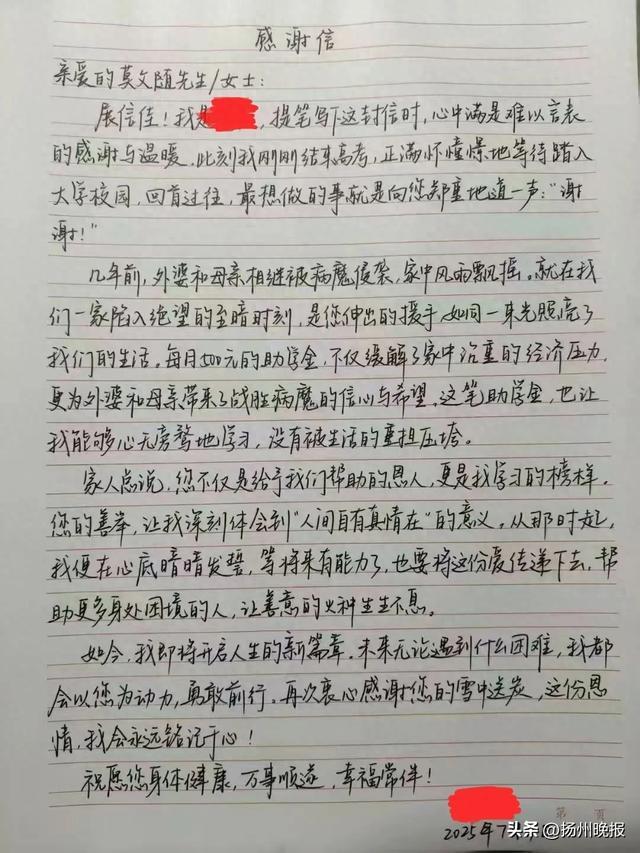 感谢信
亲爱的莫文随先生/女士：
展信佳！我是，提笔写下这封信时，心中满是难以言表
的感谢与温暖。此刻我刚刚结束高考，正满怀憧憬地等待踏入
大学校园，回首过往，最想做的事就是向您郑重地道一声："谢
谢！"
几年前，外婆和母亲相继被病魔侵袭，家中风雨飘摇。就在我
们一家陷入绝望的至暗时刻，是您伸出的援手，如同一束光照亮了
我们的生活。每月500元的助学金，不仅缓解了家中沉重的经济压力，
更为外婆和母亲带来了战胜病魔的信心与希望。这笔助学金，也让
我能够心无旁骛地学习，没有被生活的重担压垮。
家人总说，您不仅是给予我们帮助的恩人，更是我学习的榜样。
您的善举，让我深刻体会到"人间自有真情在"的意义。从那时起，
我便在心底暗暗发誓，等将来有能力了，也要将这份爱传递下去，帮
助更多身处困境的人，让善意的火种生生不息。
如今，我即将开启人生的新篇章。未来无论遇到什么困难，我都
会以您为动力，勇敢前行。再次衷心感谢您的雪中送炭，这份恩
情，我会永远铭记于心！
祝愿您身体健康，万事顺遂，幸福常伴！
第 页
2025年7月
头条 @扬州晚报